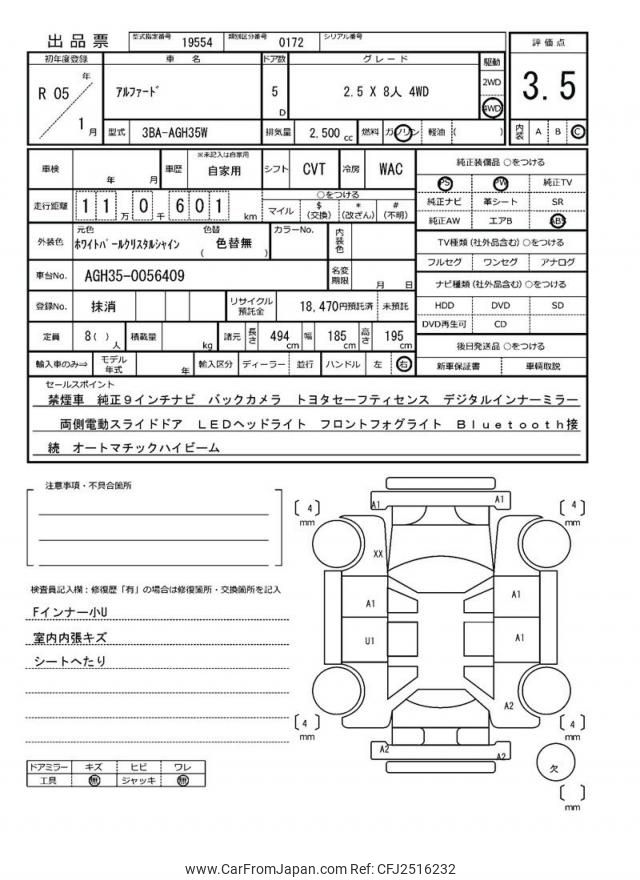 出品票 型式指定番号 19554 類別区分番号 0172 シリアル番号
初年度登録 車 名 ドア数 グレード 駆動 評価点
R 05 年 1 月 アルファード 5 D 2.5 X 8人 4WD 2WD 4WD 3.5
型式 3BA-AGH35W 排気量 2,500 cc 燃料 ガソリン 軽油 ( ) 内装 A B C
車検 年 月 車歴 ※未記入は自家用 自家用 シフト CVT 冷房 WAC 純正装備品 ○をつける
PS PW 純正TV
走行距離 1 1 万 0 千 6 0 1 km ○をつける
マイル $ (交換) * (改ざん) # (不明)
純正ナビ 革シート SR
純正AW エアB ABS
外装色 元色 ホワイトパールクリスタルシャイン 色替 色替無 ( ) カラーNo. 内装色
TV種類 (社外品含む) ○をつける
フルセグ ワンセグ アナログ
車台No. AGH35-0056409 名変期限 月 日
ナビ種類 (社外品含む) ○をつける
登録No. 抹消 リサイクル預託金 18,470円預託済 未預託
HDD DVD SD
DVD再生可 CD
定員 8( ) 人 積載量 kg 諸元 長さ 494 cm 幅 185 cm 高さ 195 cm
後日発送品 ○をつける
輸入車のみ⇒ モデル年式 年 輸入区分 ディーラー 並行 ハンドル 左 右
新車保証書 車輌取説
セールスポイント
禁煙車 純正9インチナビ バックカメラ トヨタセーフティセンス デジタルインナーミラー
両側電動スライドドア LEDヘッドライト フロントフォグライト Bluetooth接
続 オートマチックハイビーム
注意事項・不具合箇所
検査員記入欄：修復歴「有」の場合は修復箇所・交換箇所を記入
Fインナー小U
室内内張キズ
シートへたり
ドアミラー キズ ヒビ ワレ
工具 無 ジャッキ 無
A1 A1
4 mm 4 mm
XX
A1 A1
U1 A1
A2
4 mm 4 mm
A2 A2
欠
mm
www.CarFromJapan.com Ref: CFJ2516232